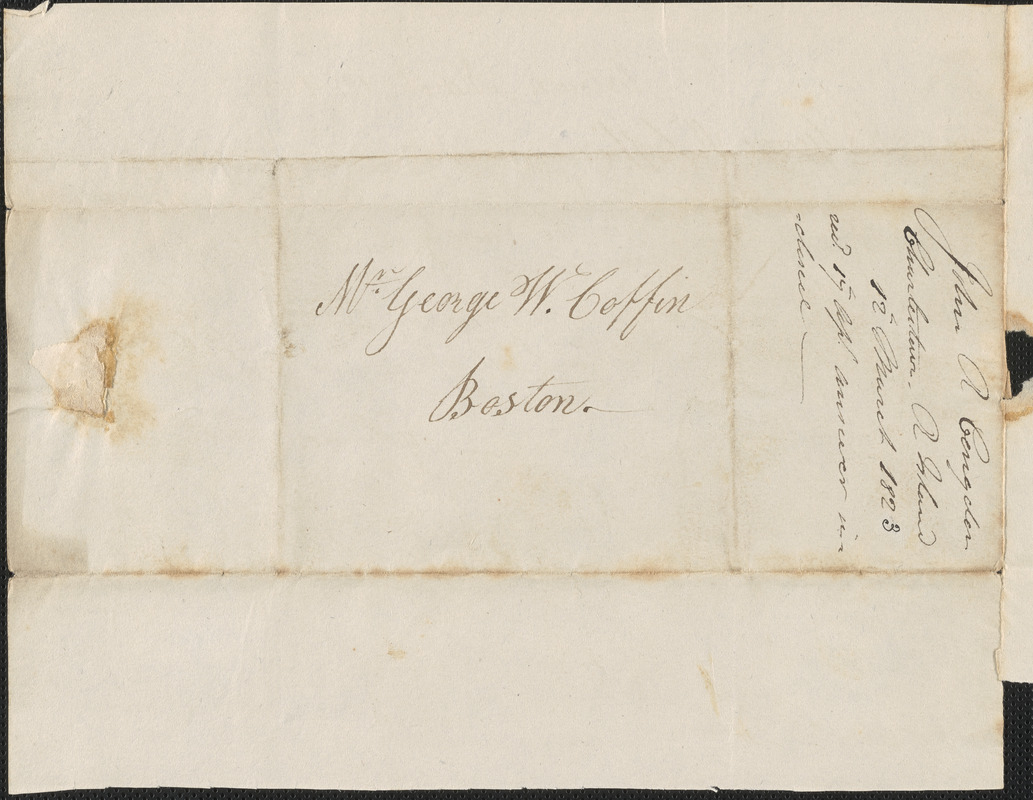 Mr. George W. Coffin
Boston.
John R Congdon
Charlestown R Island
12th March 1823
recd. 17 Answer in-
-closed